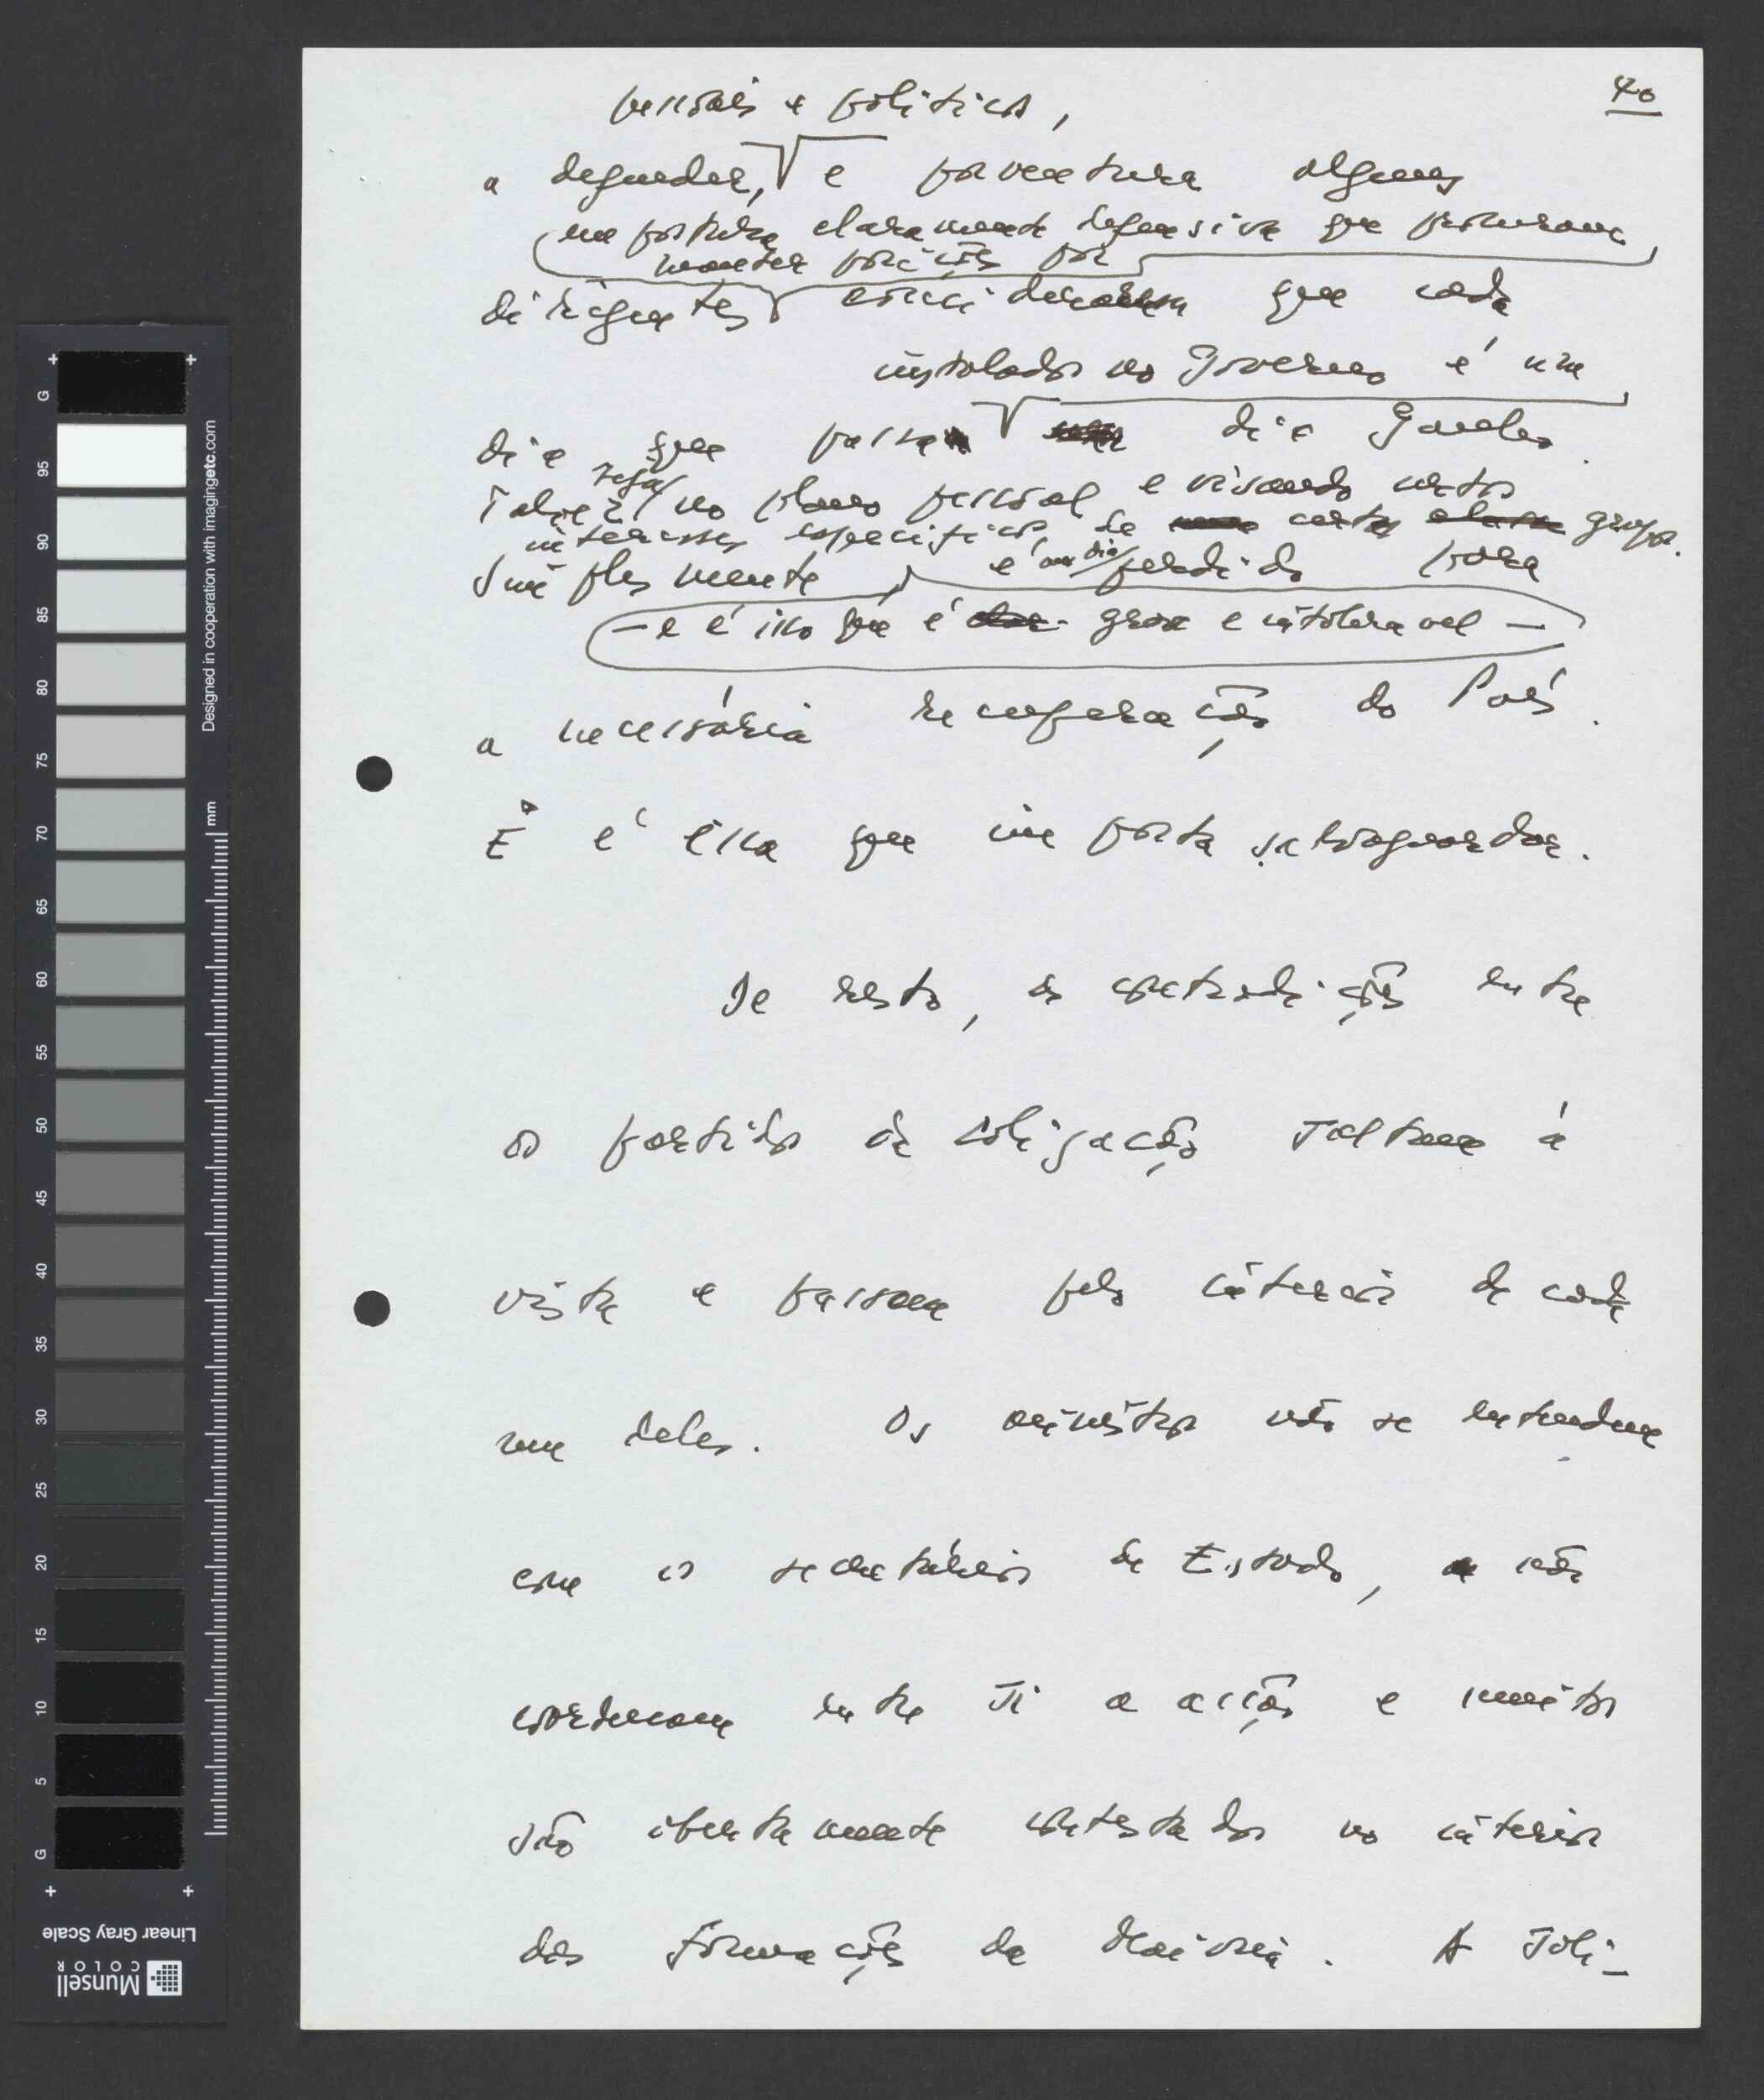 40
pessoais e políticos,
a degradar, e porventura alguns
na postura claramente defensiva que procuram
manter posições por
dirigentes considerarem que cada
instalados no Governo é um
dia que passa dia ganho.
Talvez seja no plano pessoal e visando certos
interesses específicos de certos grupos.
Simplesmente, é um dia perdido para
— e é isso que é grave e intolerável —
a necessária recuperação do País.
E é essa que importa salvaguardar.
De resto, as contradições entre
os partidos da coligação saltam à
vista e passam pelo interior de cada
um deles. Os ministros não se entendem
com os secretários de Estado, não
coordenam entre si a acção e muitos
são abertamente contestados no interior
das formações da maioria. A soli-
Designed in cooperation with imagingetc.com
mm
G 95 90 85 80 75 70 65 60 55 50 45 40 35 30 25 20 15 10 5 G
Linear Gray Scale
Munsell
COLOR